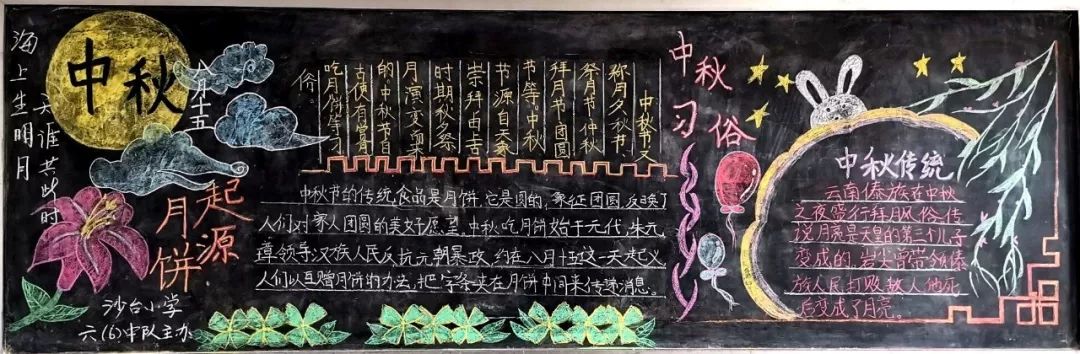 海上生明月
天涯共此时
中秋
八月十五
月饼
起源
沙台小学
六(6)中队主办
中秋节又
称月夕、秋节、
祭月节、仲秋
拜月节、团圆
节等,中秋
节源自天象
崇拜,由古
时期秋夕祭
月演变而来
的。中秋节自
古便有赏月
吃月饼等习
俗。
中秋节的传统食品是月饼,它是圆的,象征团圆,反映了
人们对家人团圆的美好愿望,中秋吃月饼始于元代,朱元
璋领导汉族人民反抗元朝暴政,约在八月十五这一天起义
人们以互赠月饼的办法,把字条夹在月饼中间来传递消息。
中秋习俗
中秋传统
云南傣族在中秋
之夜盛行拜月风俗,传
说月亮是天皇的第三个儿子
变成的,岩尖曾带领傣
族人民打败敌人,他死
后变成了月亮。